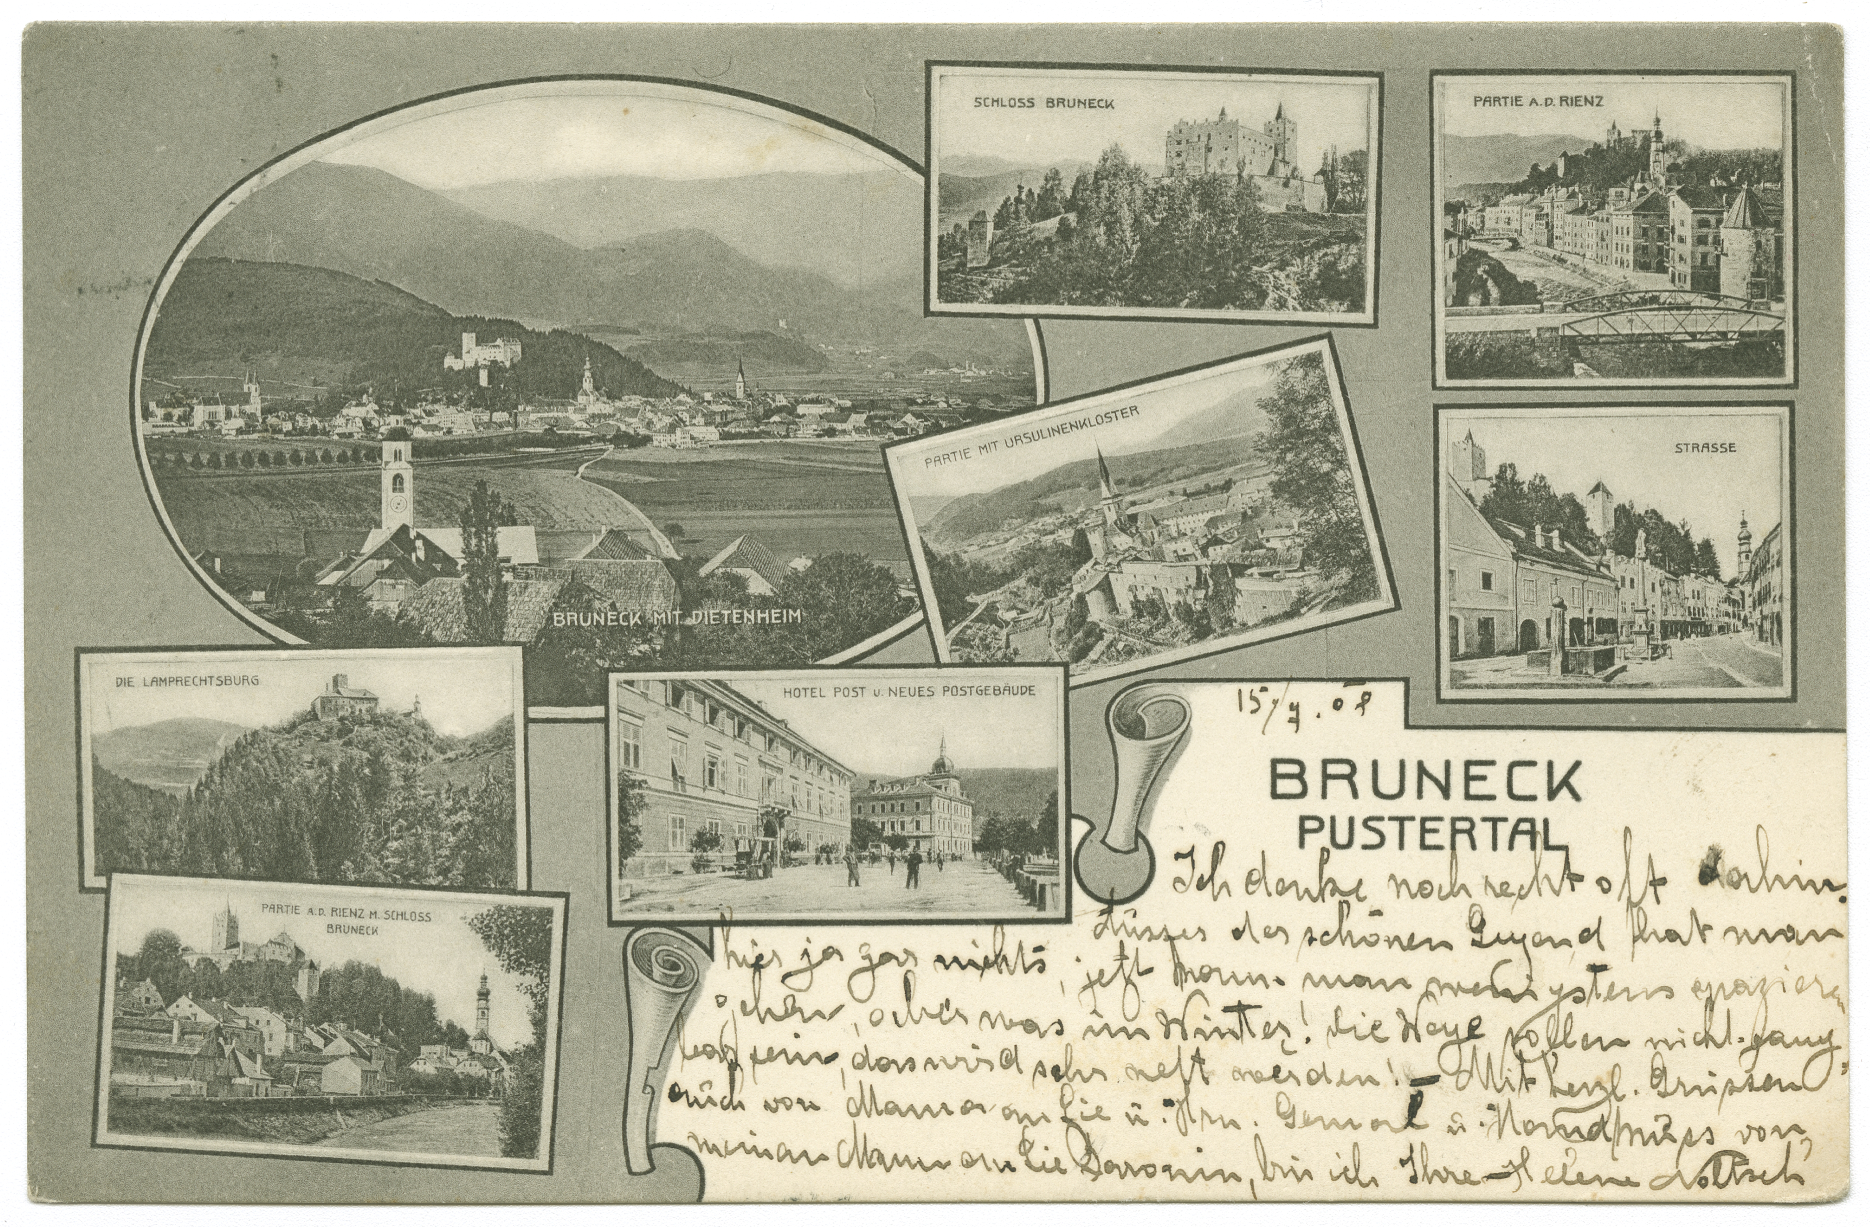 SCHLOSS BRUNECK
PARTIE A.D. RIENZ
PARTIE MIT URSULINENKLOSTER
STRASSE
BRUNECK MIT DIETENHEIM
DIE LAMPRECHTSBURG
HOTEL POST u. NEUES POSTGEBÄUDE
PARTIE A.D. RIENZ M. SCHLOSS
BRUNECK
15/7.08
BRUNECK
PUSTERTAL
Ich denke noch recht oft dorthin.
Ausser der schönen Gegend hat man
hier ja gar nichts, jetzt kann man wenigstens spazieren
gehen, aber was im Winter! Die Wege sollen nicht gang-
bar sein, das wird sehr nett werden! – Mit herzl. Grüssen
auch von Mama an Sie u. Hrn. Gemal u. Handkuss von
meinem Mann an Sie Baronin, bin ich Ihre Helene